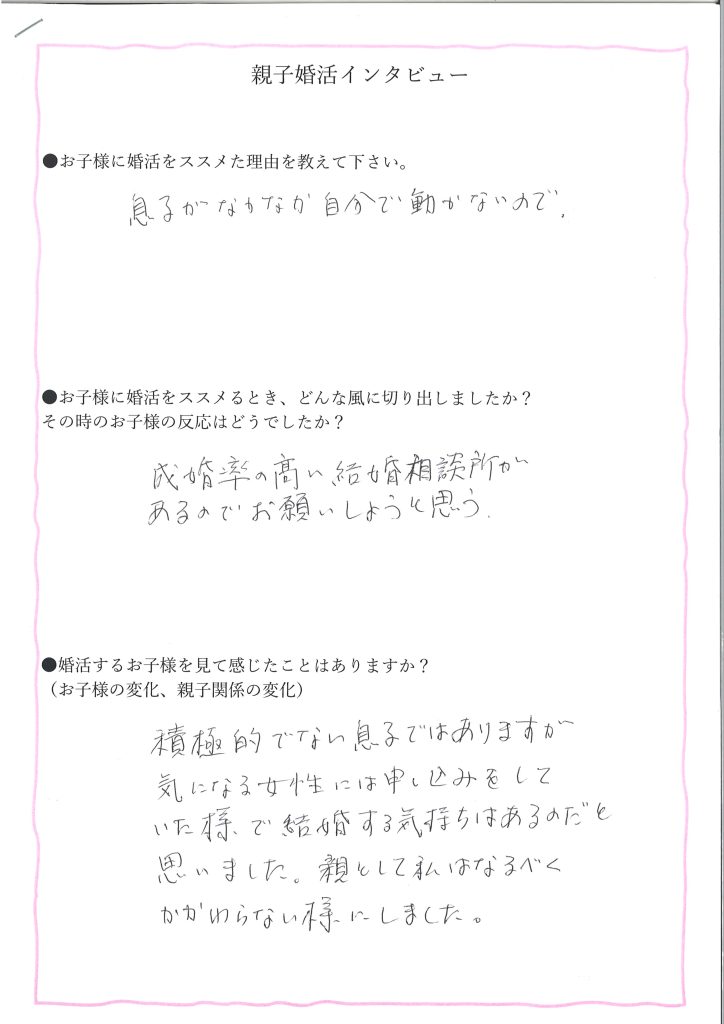 親子婚活インタビュー
●お子様に婚活をススメた理由を教えて下さい。
息子がなかなか自分で動かないので.
●お子様に婚活をススメるとき、どんな風に切り出しましたか？
その時のお子様の反応はどうでしたか？
成婚率の高い結婚相談所が
あるのでお願いしようと思う.
●婚活するお子様を見て感じたことはありますか？
（お子様の変化、親子関係の変化）
積極的でない息子ではありますが
気になる女性には申し込みをして
いた様で結婚する気持ちはあるのだと
思いました。親として私はなるべく
かかわらない様にしました。